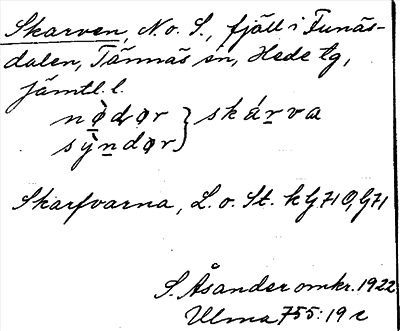 Skarven, N. o. S., fjäll i Funäs-
dalen, Tännäs sn, Hede tg,
Jämtl. l.
nø̀dǝr } skárva
sỳndǝr
Skarfvarna, L. o. St. k G 71 O, G 71
S. Åsander omkr. 1922
Ulma 755:19 c